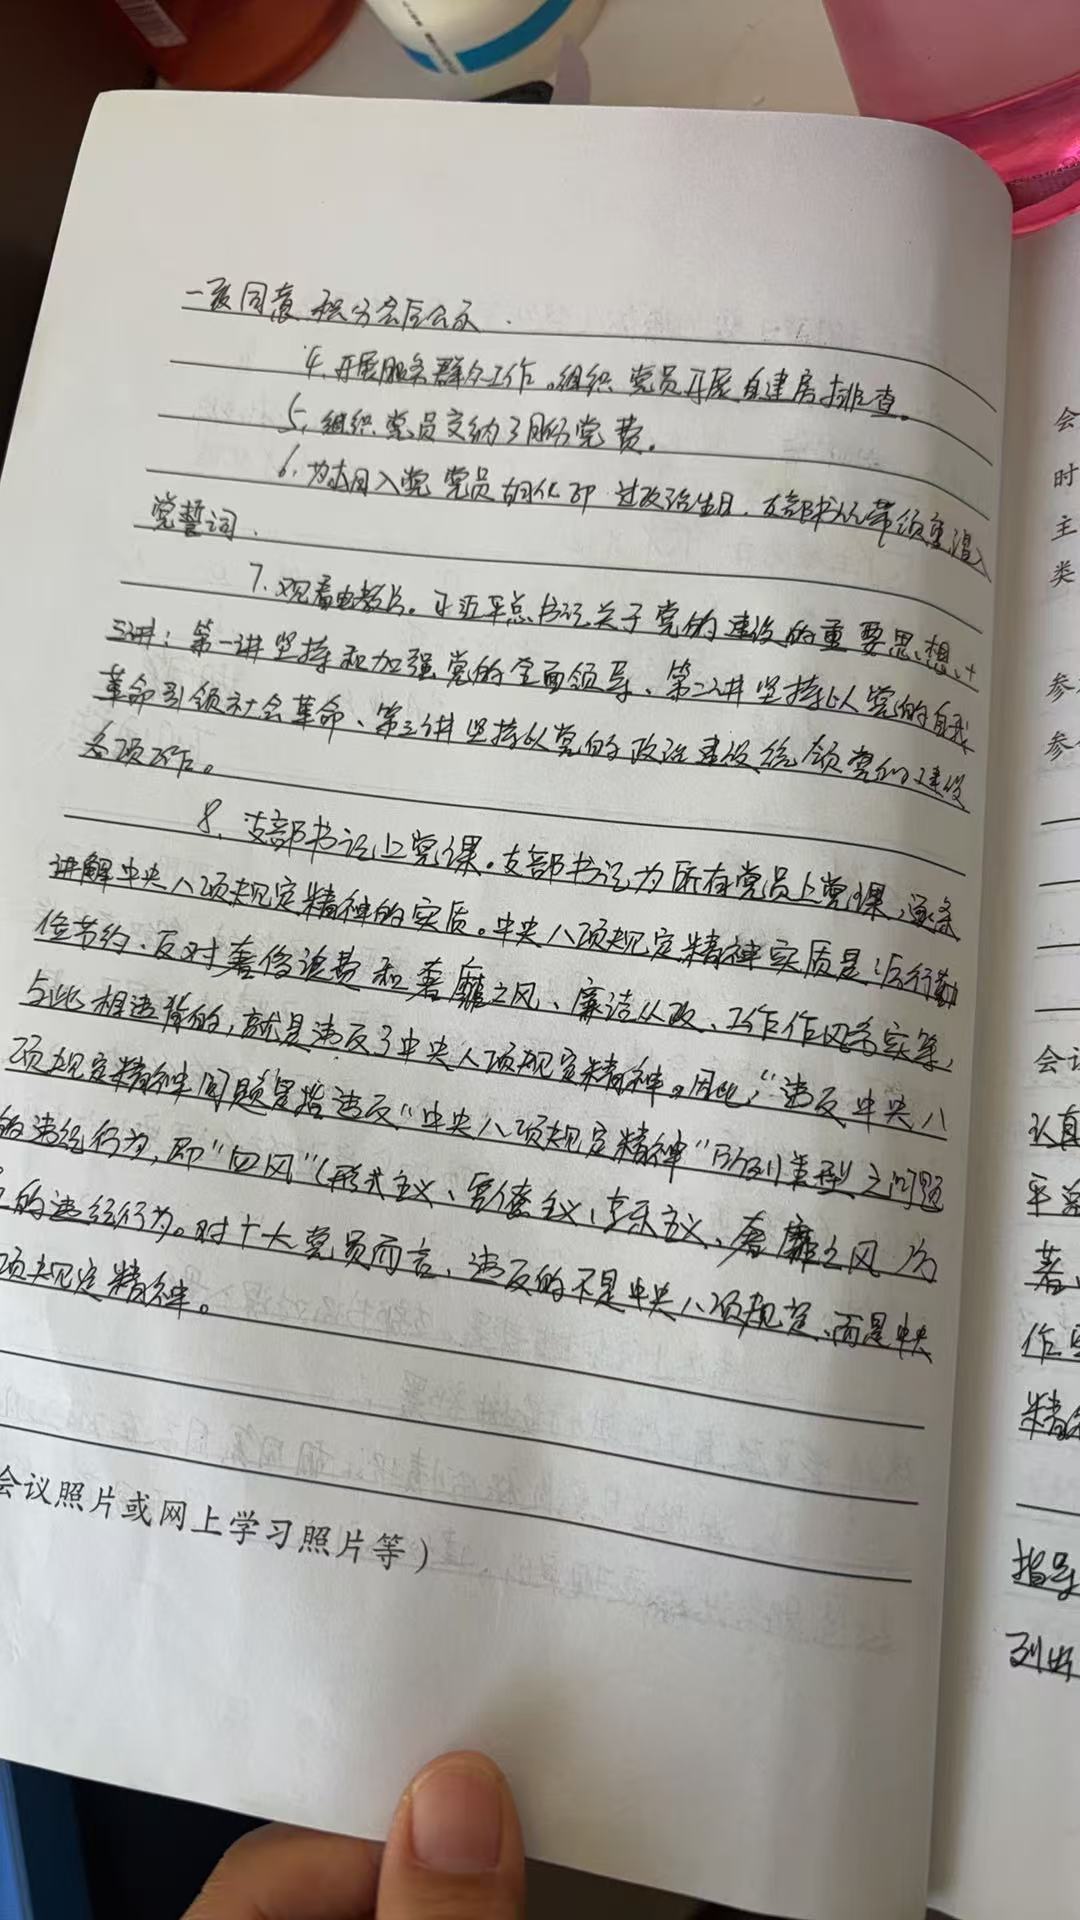 一致同意,积分会后公示.
4、开展服务群众工作。组织党员开展自建房排查。
5、组织党员交纳3月份党费。
6、为本月入党党员过政治生日.支部书记带领重温入
党誓词.
7、观看电教片。习近平总书记关于党的建设的重要思想、十
三讲:第一讲坚持和加强党的全面领导、第二讲坚持以党的自我
革命引领社会革命、第三讲坚持以党的政治建设统领党的建设
各项工作。
8、支部书记上党课。支部书记为所有党员上党课,逐条
讲解中央八项规定精神的实质。中央八项规定精神实质是:厉行勤
俭节约、反对奢侈浪费和奢靡之风、廉洁从政、工作作风务实等,
与此相违背的,就是违反了中央八项规定精神。因此,“违反中央八
项规定精神问题是指违反“中央八项规定精神”所列类型之问题
的违纪行为,即“四风”(形式主义、官僚主义、享乐主义、奢靡之风为
的违纪行为。对十大党员而言、违反的不是中央八项规定、而是中央
项规定精神。
会议照片或网上学习照片等)
会
时
主
类
参
参
会议
认真
平总
著
作
精神
指导
到